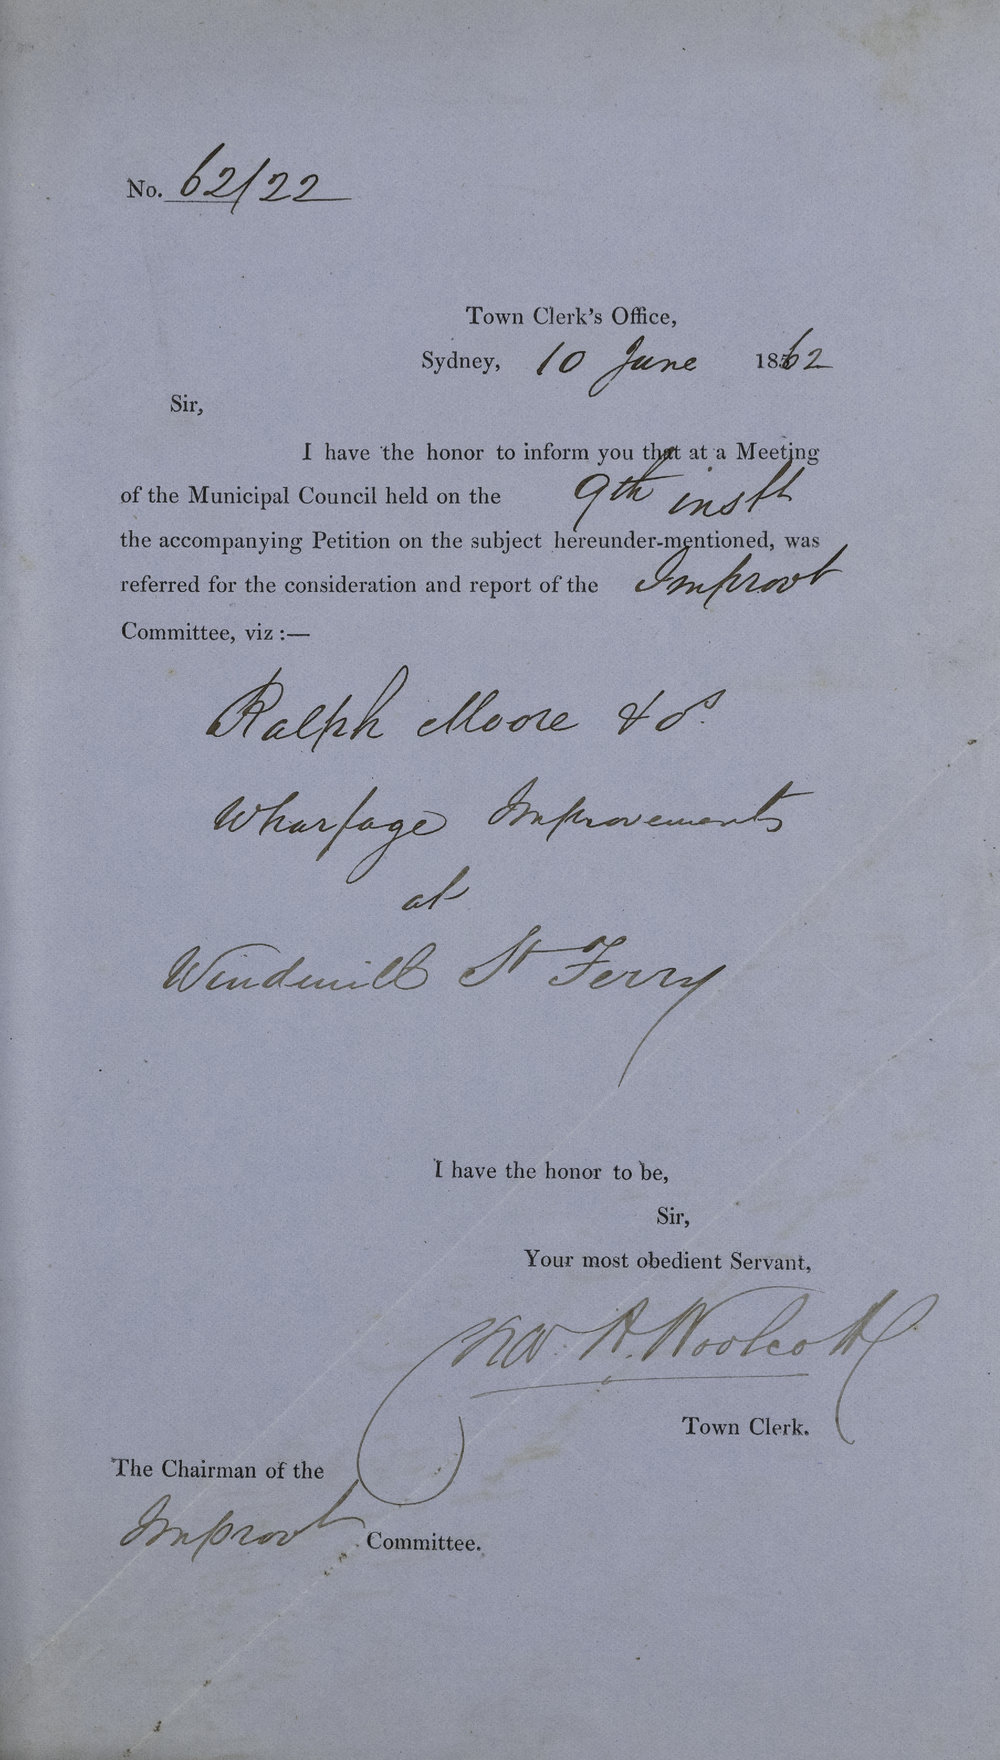 No. 62/22
Town Clerk's Office,
Sydney, 10 June 1862
Sir,
I have the honor to inform you that at a Meeting
of the Municipal Council held on the 9th instt
the accompanying Petition on the subject hereunder-mentioned, was
referred for the consideration and report of the Improvt
Committee, viz :—
Ralph Moore & os.
Wharfage Improvements
at
Windmill St Ferry
I have the honor to be,
Sir,
Your most obedient Servant,
A. Woolcott
Town Clerk.
The Chairman of the
Improvt Committee.